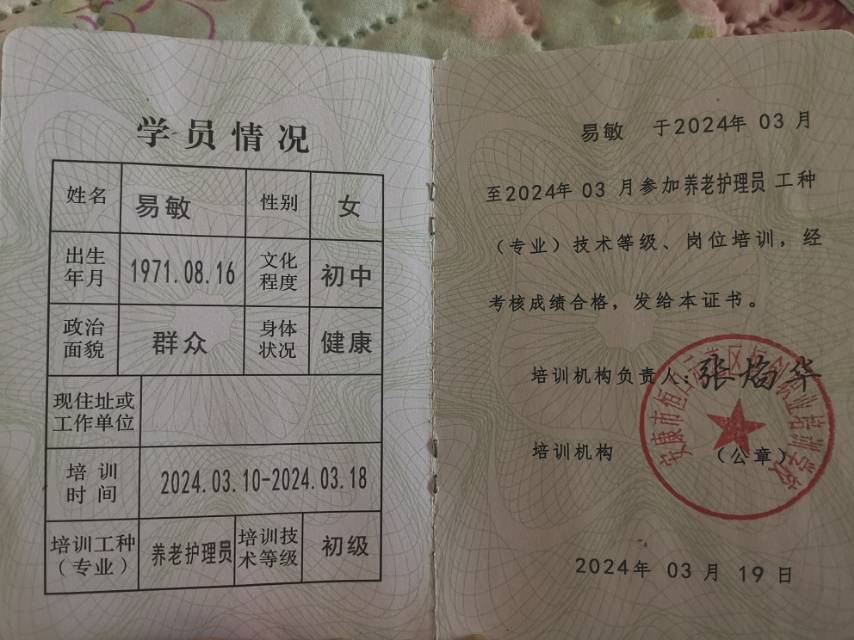 学员情况
姓名 易敏 性别 女
出生年月 1971.08.16 文化程度 初中
政治面貌 群众 身体状况 健康
现住址或工作单位
培训时间 2024.03.10-2024.03.18
培训工种（专业） 养老护理员 培训技术等级 初级
易敏 于2024年 03 月
至2024年 03 月参加养老护理员 工种
（专业）技术等级、岗位培训，经
考核成绩合格，发给本证书。
培训机构负责人：张焰华
培训机构 （公章）
安康市 区 培训学校
2024年 03 月 19 日